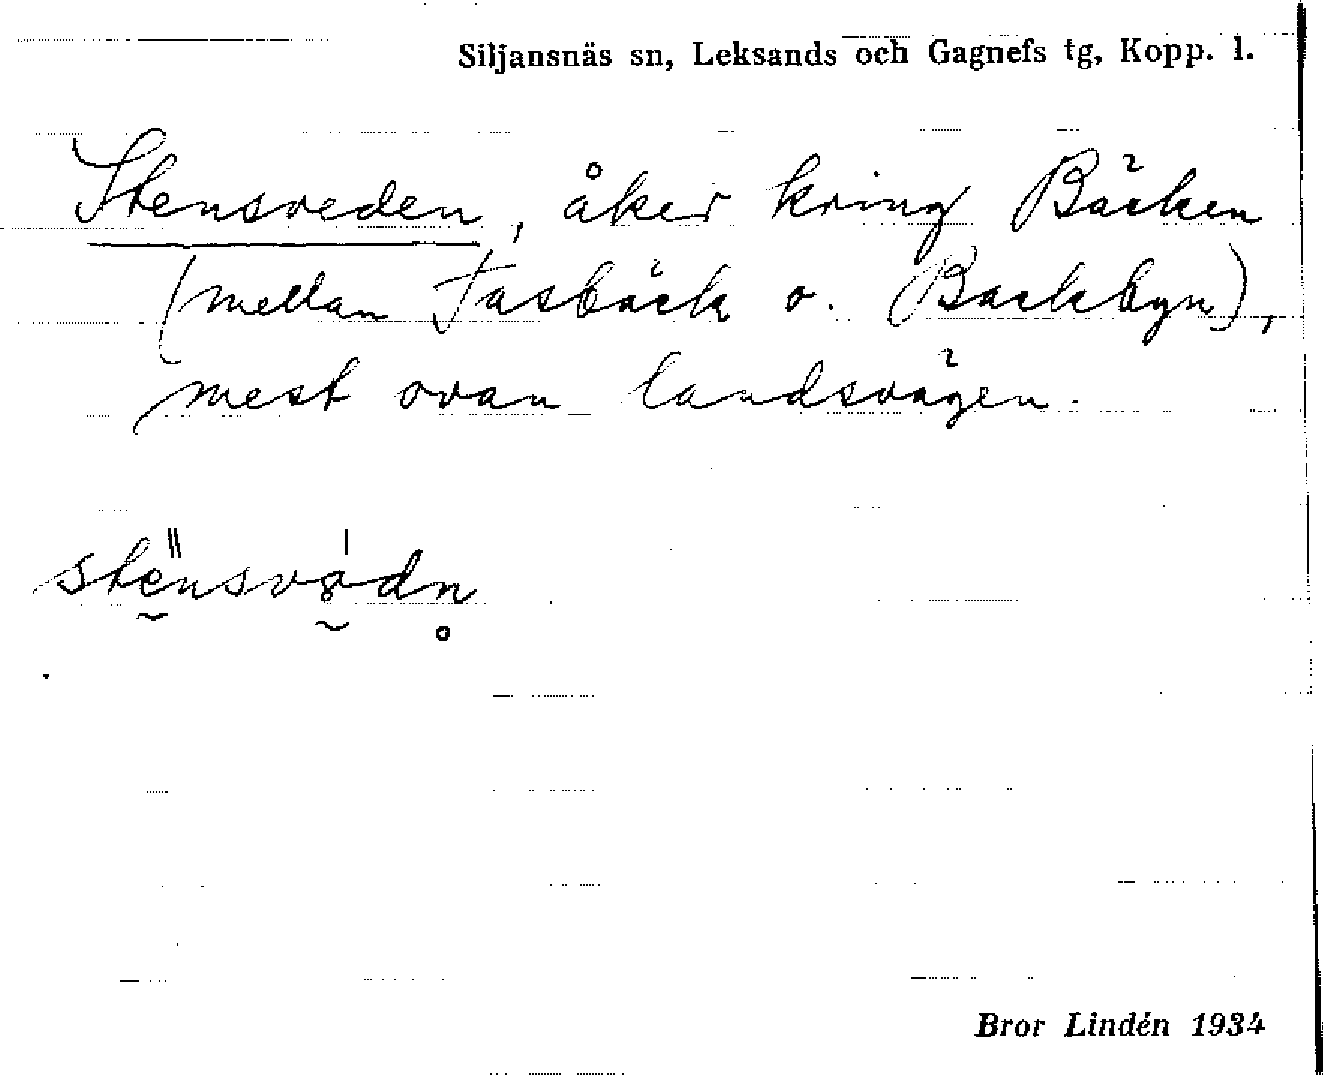 Siljansnäs sn, Leksands och Gagnefs tg, Kopp. l.
Stensveden, åker kring Bäcken
(mellan Fasbäck o. Backbyn),
mest ovan landsvägen.
Bror Lindén 1934